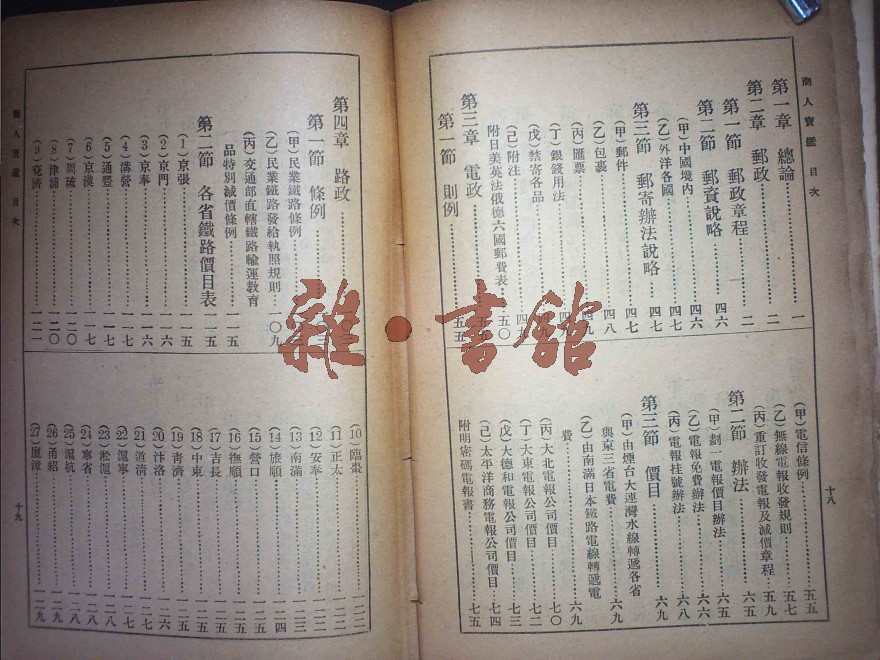 商人寶鑑 目次
十八
第一章 總論……一
第二章 郵政……二
第一節 郵政章程……二
第二節 郵資說略……四六
(甲)中國境內……四六
(乙)外洋各國……四七
第三節 郵寄辦法說略……四七
(甲)郵件……四七
(乙)包裹……四八
(丙)匯票……四九
(丁)銀錢用法
(戊)禁寄各品
(己)附注……四九
附日美英法俄德六國郵費表……五〇
第三章 電政……五五
第一節 則例……五五
(甲)電信條例……五五
(乙)無線電報收發規則……五七
(丙)重訂收發電報及減價章程……五九
第二節 辦法……六五
(甲)劃一電報價目辦法……六五
(乙)電報免費辦法……六六
(丙)電報挂號辦法……六八
第三節 價目……六九
(甲)由煙台大連灣水線轉遞各省
與東三省電費……六九
(乙)由南滿日本鐵路電線轉遞電
費……六九
(丙)大北電報公司價目……七〇
(丁)大東電報公司價目……七二
(戊)大德和電報公司價目……七三
(己)太平洋商務電報公司價目……七四
附明密碼電報書……七五
第四章 路政
第一節 條例
(甲)民業鐵路條例
(乙)民業鐵路發給執照規則……一〇九
(丙)交通部直轄鐵路輸運教育
品特別減價條例……一一五
第二節 各省鐵路價目表……一一五
(1)京張……一一五
(2)京門……一一六
(3)京奉……一一六
(4)溝營……一一七
(5)通豐……一一七
(6)京漢……一一七
(7)周琉……一二〇
(8)津浦……一二〇
(9)兗濟……一二一
(10)臨棗……一二二
(11)正太……一二二
(12)安奉……一二二
(13)南滿……一二三
(14)旅順……一二四
(15)營口……一二五
(16)撫順……一二五
(17)吉長……一二五
(18)中東……一二五
(19)青濟……一二五
(20)汴洛……一二六
(21)道清……一二七
(22)滬寧……一二七
(23)淞滬……一二八
(24)寧省……一二八
(25)滬杭……一二八
(26)甬紹……一二九
(27)廈漳……一二九
商人寶鑑 目次
十九
雜·書館